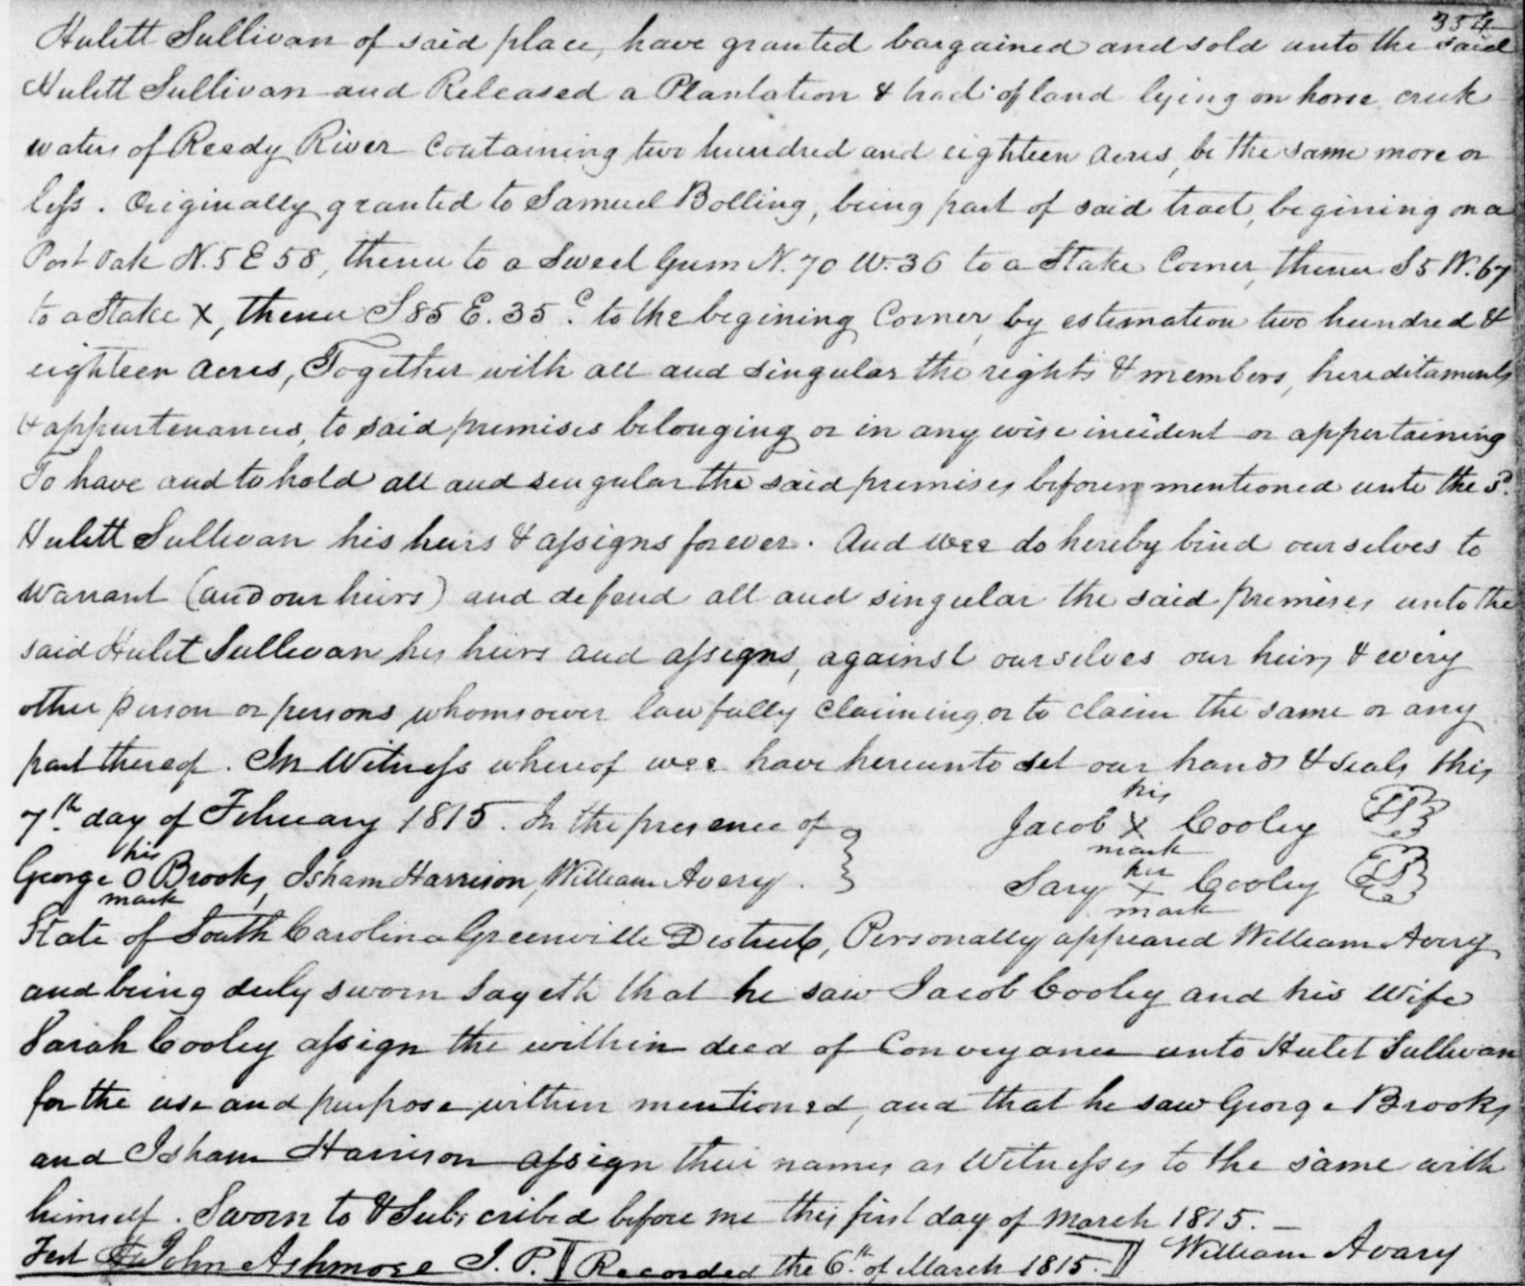 354
Hulett Sullivan of said place, have granted bargained and sold unto the said
Hulett Sullivan and Released a Plantation & tract of land lying on horse creek
waters of Reedy River Containing two hundred and eighteen acres, be the same more or
less. Originally granted to Samuel Bolling, being part of said tract, begining on a
Post Oak N. 5 E 58, thence to a Sweet Gum N. 70 W. 36 to a Stake Corner, thence S 5 W. 67
to a Stake X, thence S 85 E. 35 C. to the begining Corner, by estimation two hundred &
eighteen acres, Together with all and singular the rights & members, hereditaments
& appurtenances, to said premises belonging or in any wise incident or appertaining
To have and to hold all and singular the said premises before mentioned unto the sd.
Hulett Sullivan his heirs & assigns forever. And wee do hereby bind ourselves to
warrant (and our heirs) and defend all and singular the said premises unto the
said Hulet Sullivan his heirs and assigns, against ourselves our heirs & every
other person or persons whomsower lawfully claiming or to claim the same or any
part thereof. In Witness whereof wee have hereunto set our hands & seals this
7th. day of February 1815. In the presence of
his
Jacob X Cooley
mark
his
George O Brooks, Isham Harrison, William Avery.
mark
her
Sary X Cooley
mark
State of South Carolina Greenville District, Personally appeared William Avery
and being duly sworn Sayeth that he saw Jacob Cooley and his Wife
Sarah Cooley assign the within deed of Conveyance unto Hulet Sullivan
for the use and purpose within mentioned, and that he saw George Brooks
and Isham Harrison assign their names as Witnesses to the same with
himself. Sworn to & Subscribed before me this first day of March 1815. —
Test John Ashmore J. P. [Recorded the 6th. of March 1815.] William Avary